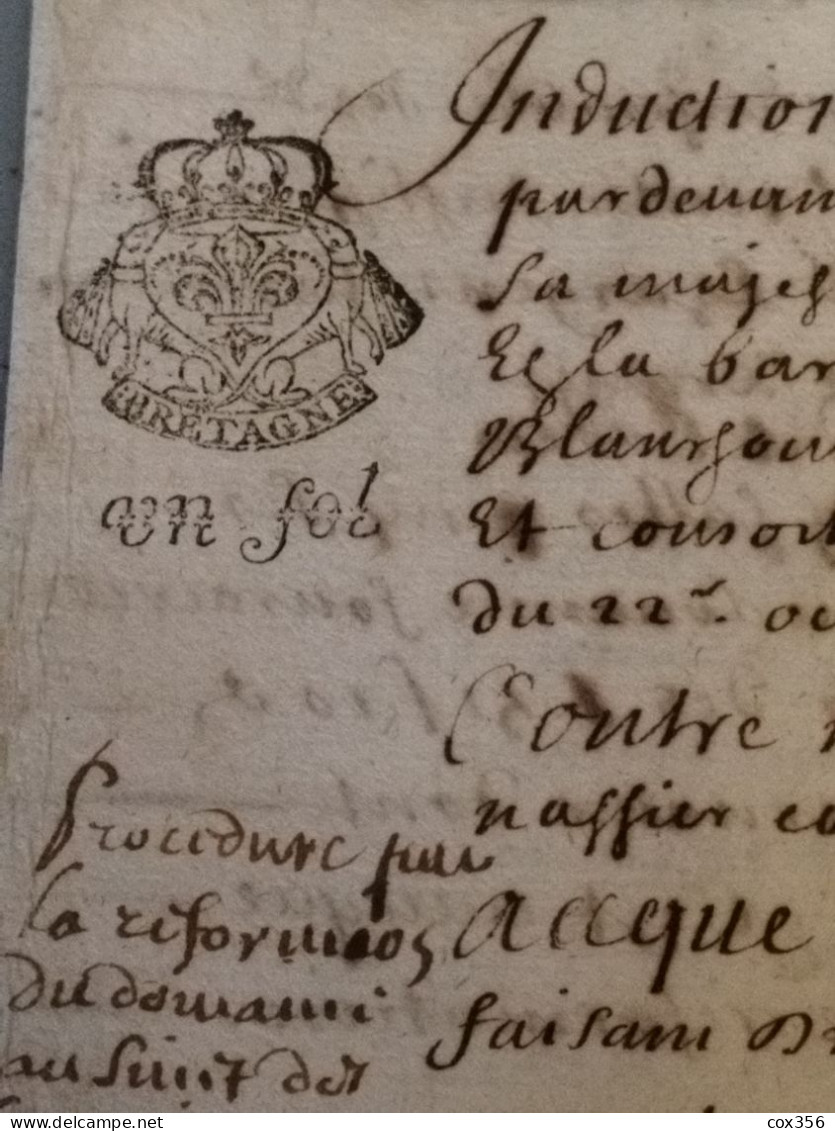 BRETAGNE
un sol
Induction
pardevan
sa majes
Et la bar
Et consort
du 22e. oc
Contre
nassier co
acque
faisant
Procedure par
la reformaon
du domaine
au sujet des
cox356